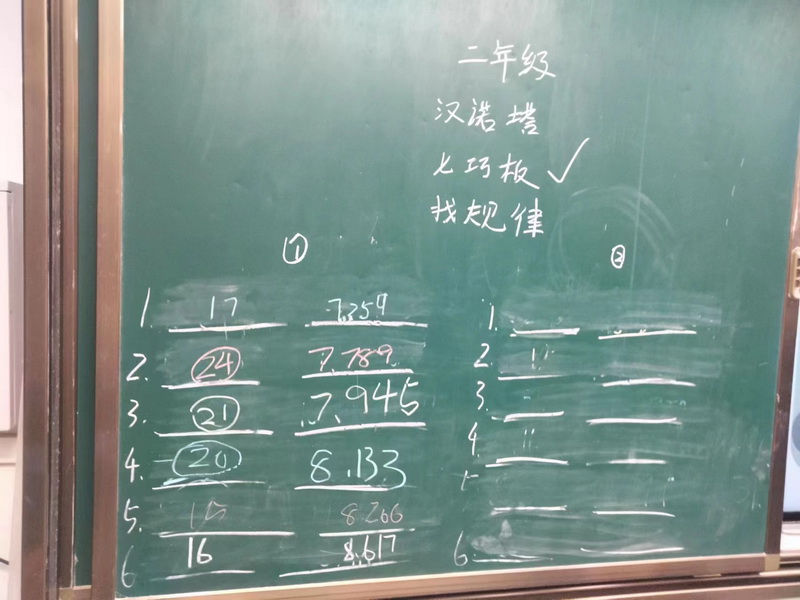 二年级
汉诺塔
七巧板 ✓
找规律
① ②
1. 17 7.259 1.
2. 24 7.789 2.
3. 21 7.945 3.
4. 20 8.133 4.
5. 15 8.266
6 16 8.617 6.